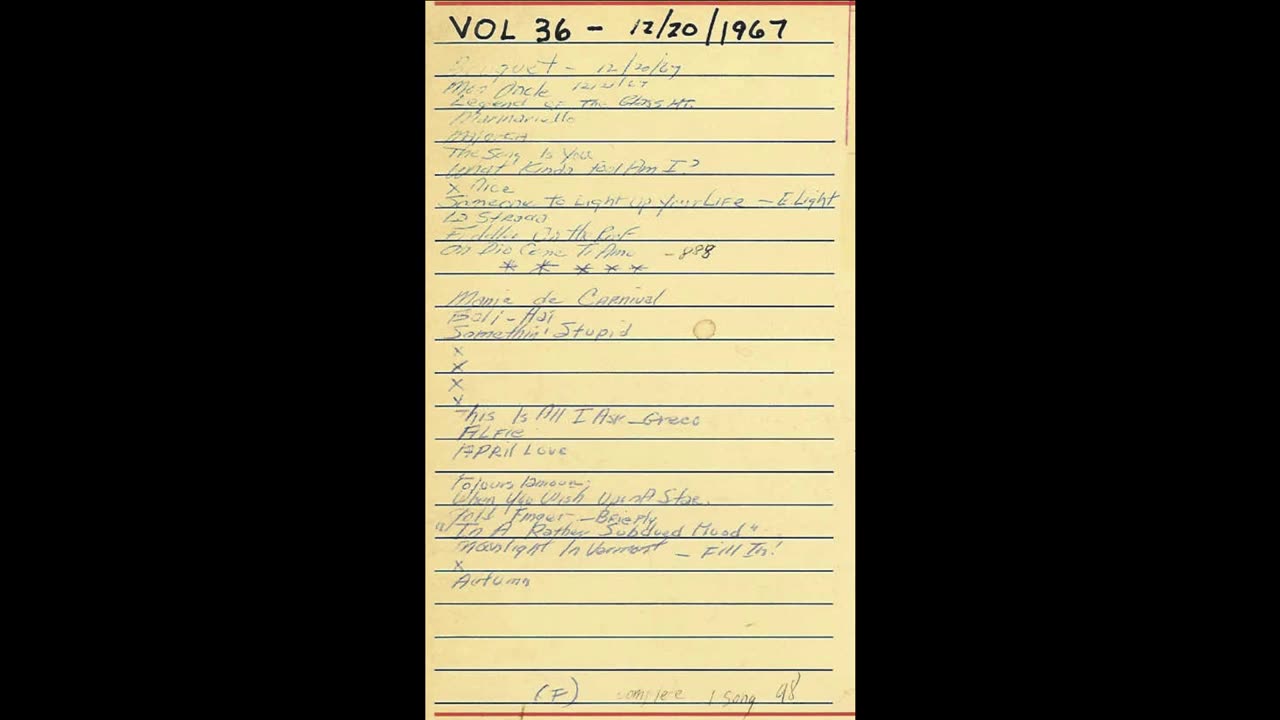 VOL 36 - 12/20/1967
Bouquet - 12/20/67
Mon Oncle 12/21/67
Legend of The Glass MT.
Marinariello
Majorca
The Song Is You
What Kinda Fool Am I?
x Nice
Someone to Light Up Your Life - E Light
La Strada
Fiddler On the Roof
Oh Dio Come Ti Amo - 888
* * * * *
Manje de Carnival
Bali-Hai
Somethin' Stupid
x
x
x
x
This Is All I Ask - Greco
Alfie
April Love
When You Wish Upon A Star.
Gold Finger - Briefly
"In A Rather Subdued Mood"
Moonlight In Vermont - Fill In!
x
Autumn
(F) complete 1 song 98